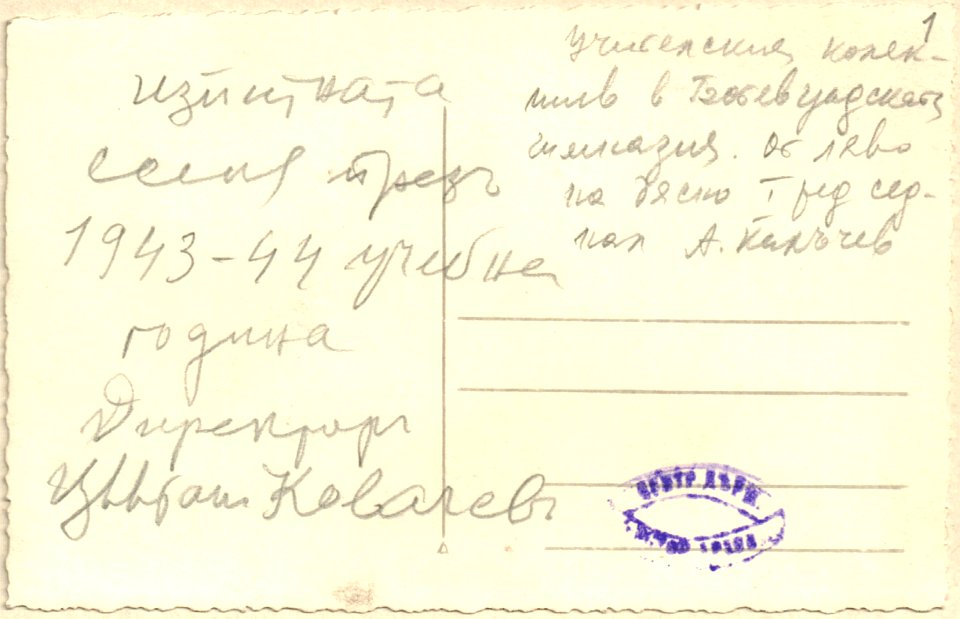 1
изпитната
сесия презъ
1943-44 учебна
година
Директоръ
Цвѣтан Ковачевъ
Учителския колек-
тив в Ботевградската
гимназия. От ляво
на дясно I ред сед-
нал А. Кънчев
ЦЕНТР. ДЪРЖ.
АРХИВ